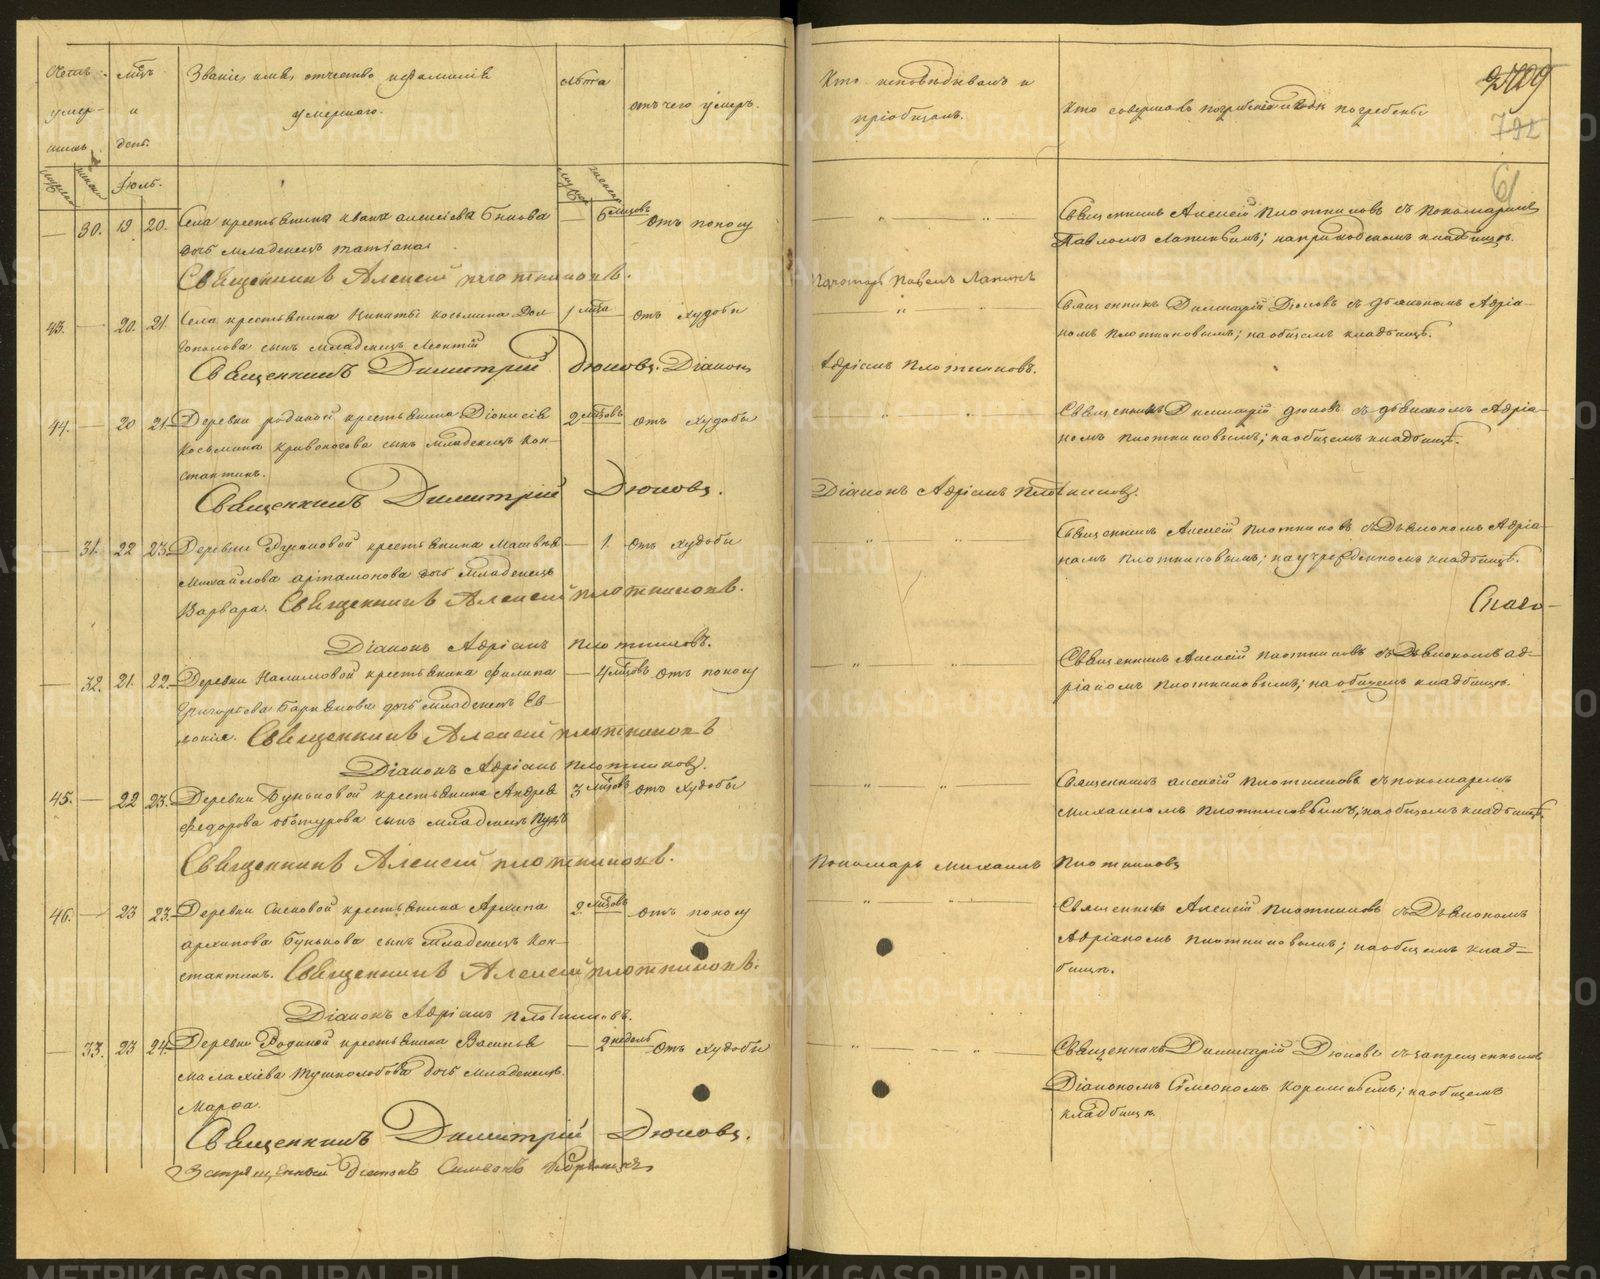 Счетъ умер-
шихъ.
Мѣсяцъ и день.
Званіе, имя, отчество и фамилія
умершаго.
лѣта
отъ чего умеръ.
Кто исповѣдывалъ и
пріобщалъ.
Кто совершалъ погребеніе и гдѣ погребены
Іюль.
30. 19 20. Села крестьянина Ивана Алексіева
6 мѣсяцовъ отъ поносу
дочь младенецъ Татіана
Священникъ Алексій Плотниковъ.
Священникъ Алексій Плотниковъ съ пономаремъ
Павломъ Лапинымъ; на приходскомъ кладбищѣ.
Пономарь Павелъ Лапинъ
43. 20. 21. Села крестьянина Никиты Косьмина Дол
1 мѣсяца отъ худобы
гополова сынъ младенецъ Леонтій
Священникъ Димитрій Дюковъ. Діаконъ
Священникъ Димитрій Дюковъ съ діакономъ Адріа-
номъ Плотниковымъ; на общемъ кладбищѣ.
Адріанъ Плотниковъ.
44. 20 21 Деревни Родиной крестьянина Діонисія
2 мѣсяцовъ отъ худобы
Косьмина Кривоногова сынъ младенецъ Кон-
стантинъ.
Священникъ Димитрій Дюковъ.
Священникъ Димитрій Дюковъ съ діакономъ Адріа-
номъ Плотниковымъ; на общемъ кладбищѣ.
Діаконъ Адріанъ Плотниковъ.
31. 22 23. Деревни крестьянина Матвѣя
1. отъ худобы
Михайлова Артамонова дочь младенецъ
Варвара. Священникъ Алексій Плотниковъ.
Діаконъ Адріанъ Плотниковъ.
Священникъ Алексій Плотниковъ съ діакономъ Адріа-
номъ Плотниковымъ; на учрежденномъ кладбищѣ.
32. 21. 22. Деревни Налимовой крестьянина Филипа
4 мѣсяцовъ отъ поносу
Григорьева дочь младенецъ Ев-
докія. Священникъ Алексій Плотниковъ
Діаконъ Адріанъ Плотниковъ.
Священникъ Алексій Плотниковъ съ діакономъ Ад-
ріаномъ Плотниковымъ; на общемъ кладбищѣ.
45. 22 23. Деревни Буньковой крестьянина Андрея
3 мѣсяцовъ отъ худобы
Федорова сынъ младенецъ
Священникъ Алексій Плотниковъ.
Священникъ Алексій Плотниковъ съ пономаремъ
Михаиломъ Плотниковымъ; на общемъ кладбищѣ.
Пономарь Михаилъ Плотниковъ
46. 23 23. Деревни крестьянина Архипа
2 мѣсяцовъ отъ поносу
Архипова Бунькова сынъ младенецъ Кон-
стантинъ. Священникъ Алексій Плотниковъ.
Діаконъ Адріанъ Плотниковъ.
Священникъ Алексій Плотниковъ съ діакономъ
Адріаномъ Плотниковымъ; на общемъ клад-
бищѣ.
33. 23 24. Деревни Родиной крестьянина Василья
2 недѣль отъ худобы
Малахіева Тушнолобова дочь младенецъ
Марѳа.
Священникъ Димитрій Дюковъ.
Священникъ Димитрій Дюковъ съ запрещеннымъ
Діакономъ Сімеономъ; на общемъ
кладбищѣ.
Запрещенный Діаконъ Симеонъ
METRIKI.GASO-URAL.RU